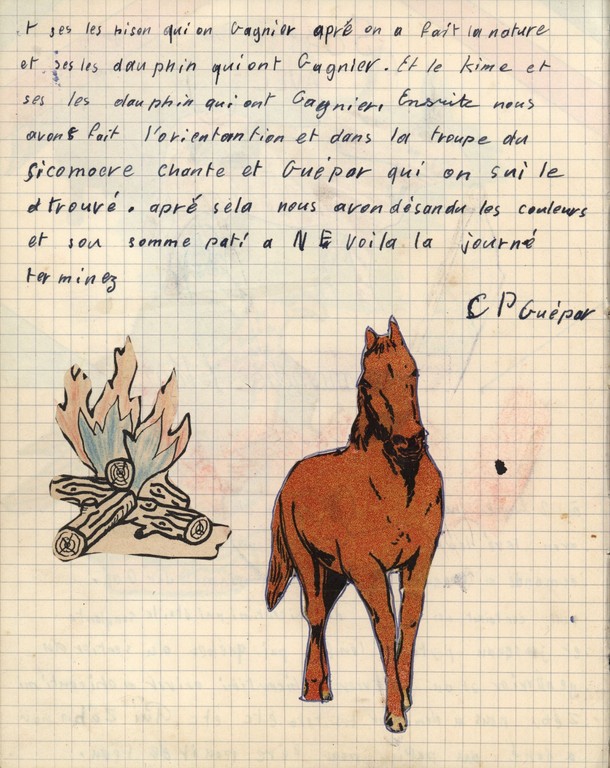 t ses les bison qui on Gagnier apré on a fait la nature
et ses les dauphin qui ont Gagnier. Et le kime et
ses les dauphin qui ont Gagnier. Ensuite nous
avons fait l'orientantion et dans la troupe du
Sicomocre chante et Guépar qui on sui le
dtrouvé. apré sela nous avon désandu les couleurs
et sou somme pati a NE voila la journé
terminez
CP Guépar